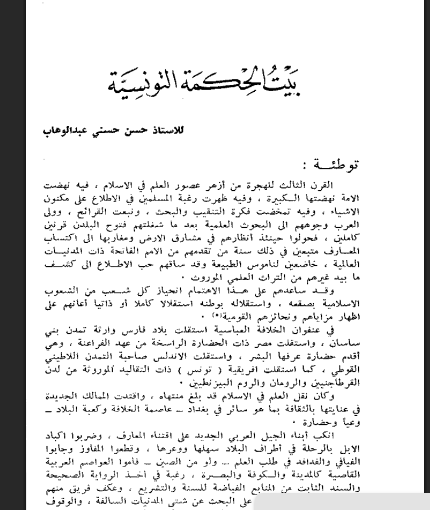 بَيْتُ الحِكْمَة التونسِيَّة
للاستاذ حسن حسني عبدالوهاب
توطئة :
القرن الثالث للهجرة من أزهر عصور العلم في الاسلام ، فيه نهضت
الامة نهضتها الكبيرة ، وفيه ظهرت رغبة المسلمين في الاطلاع على مكنون
الاشياء ، وفيه تمخضت فكرة التنقيب والبحث ، ونبعت القرائح ، وولى
العرب وجوههم الى البحوث العلمية بعد ما شغلتهم فتوح البلدن قرنين
كاملين ، فحولوا حينئذ أنظارهم في مشارق الارض ومغاربها الى اكتساب
المعارف متبعين في ذلك سنة من تقدمهم من الامم الفاتحة ذات المدنيات
العالية ، خاضعين لناموس الطبيعة وقد ساقهم حب الاطلاع الى كشف
ما بيد غيرهم من التراث العلمي الموروث .
وقد ساعدهم على هذا الاهتمام انحياز كل شعب من الشعوب
الاسلامية بصقعه ، واستقلاله بوطنه استقلالا كاملا أو ذاتيا أعانهم على
اظهار مزاياهم ونحائزهم القومية(*) .
في عنفوان الخلافة العباسية استقلت بلاد فارس وارثة تمدن بني
ساسان ، واستقلت مصر ذات الحضارة الراسخة من عهد الفراعنة ، وهي
أقدم حضارة عرفها البشر ، واستقلت الاندلس صاحبة التمدن اللاطيني
القوطي ، كما استقلت افريقية ( تونس ) ذات التقاليد الموروثة عن لدن
القرطاجنيين والرومان والروم البيزنطيين .
وكان نقل العلم في الاسلام قد بلغ منتهاه ، واقتدت الممالك الجديدة
في عنايتها بالثقافة بما هو سائر في بغداد ـ عاصمة الخلافة وكعبة البلاد ـ
وعيا وحضارة .
انكب أبناء الجيل العربي الجديد على اقتناء المعارف ، وضربوا اكباد
الابل بالرحلة في أطراف البلاد سهلها ووعرها ، وقطعوا المفاوز وجابوا
الفيافي والفدافد في طلب العلم .. ولو من الصين ـ فأموا العواصم العربية
القاصية كالمدينة والكوفة والبصرة ، رغبة في أخذ الرواية الصحيحة
والسند الثابت من المنابع الفياضة للسنة والتشريع ، وعكف فريق منهم
على البحث عن شتى المدنيات السالفة ، والوقوف